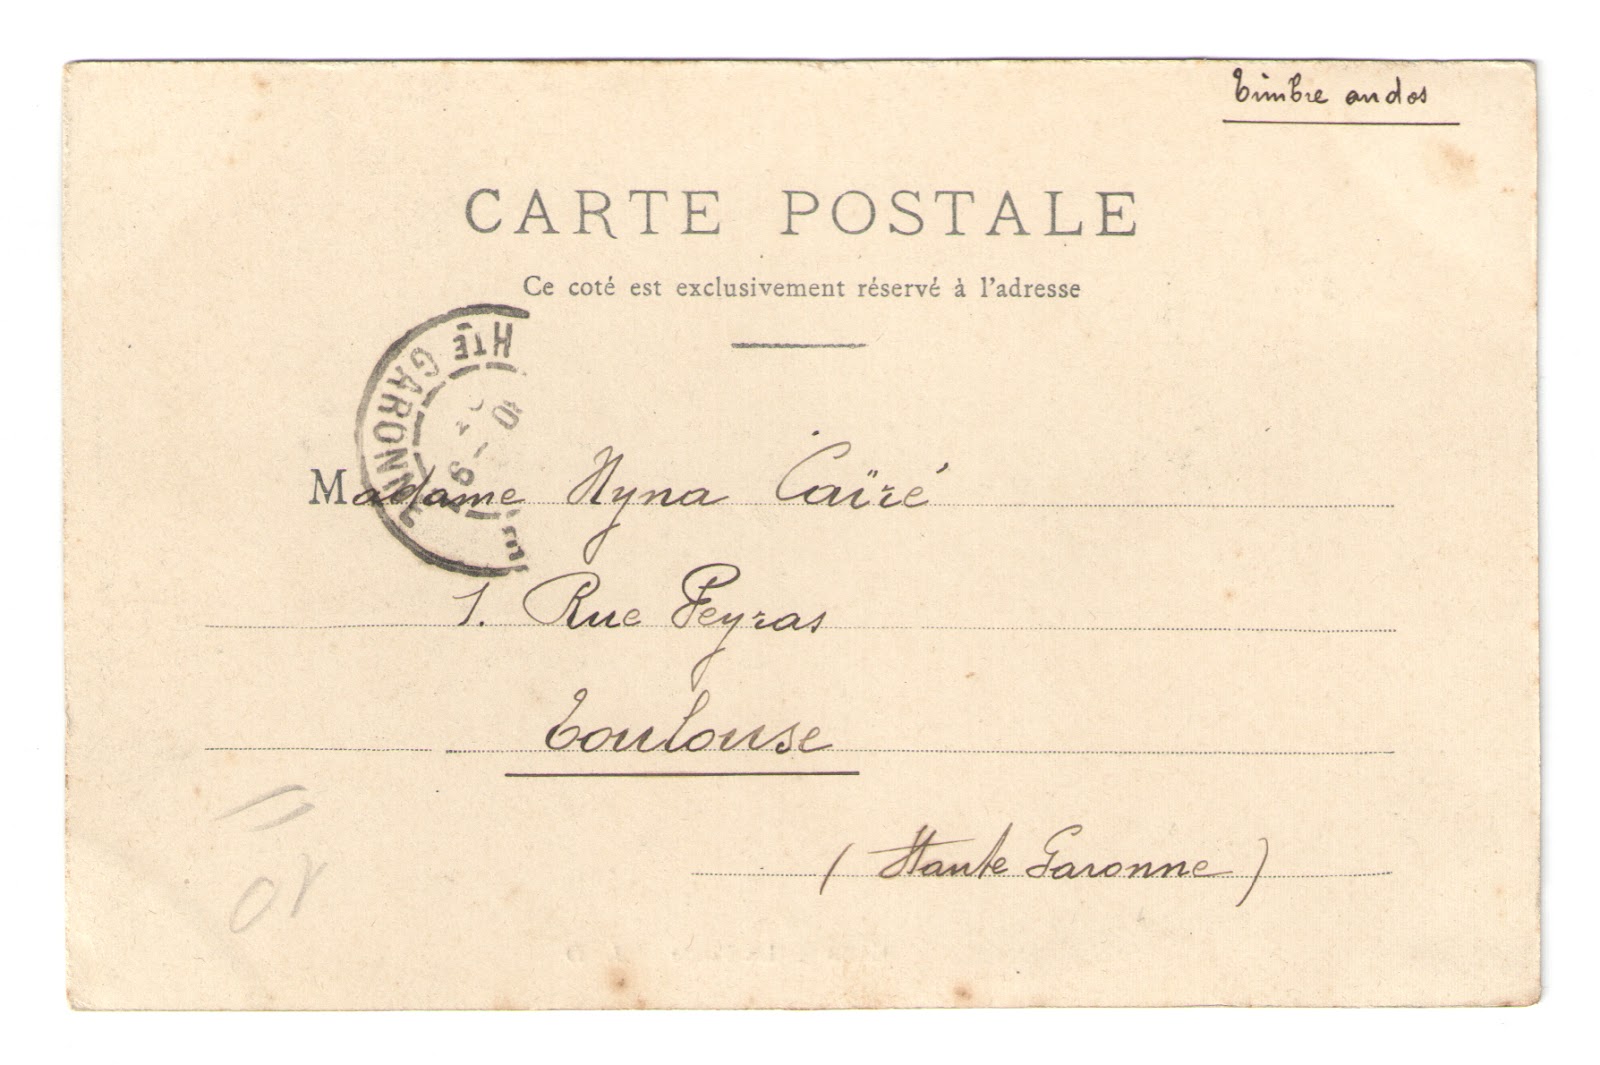 Timbre au dos
CARTE POSTALE
Ce coté est exclusivement réservé à l'adresse
HTE GARONNE
Madame Nyna Caïré
1. Rue Peyras
Toulouse
(Haute Garonne)